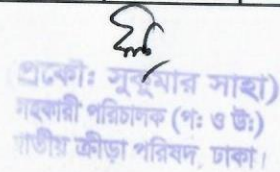 (প্রকৌঃ সুকুমার সাহা)
সহকারী পরিচালক (পঃ ও উঃ)
জাতীয় ক্রীড়া পরিষদ, ঢাকা।